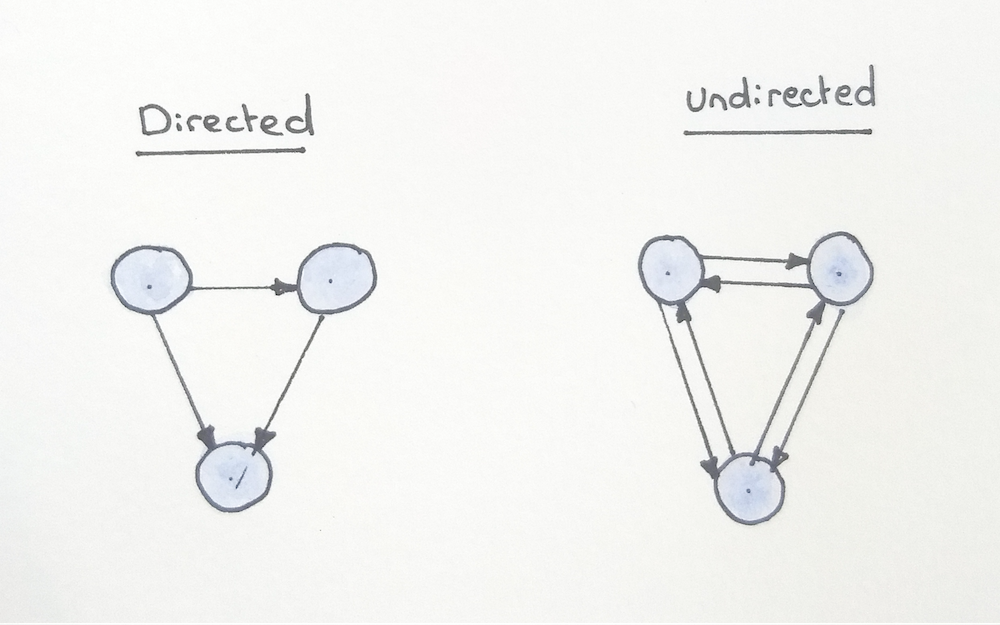 Directed
Undirected